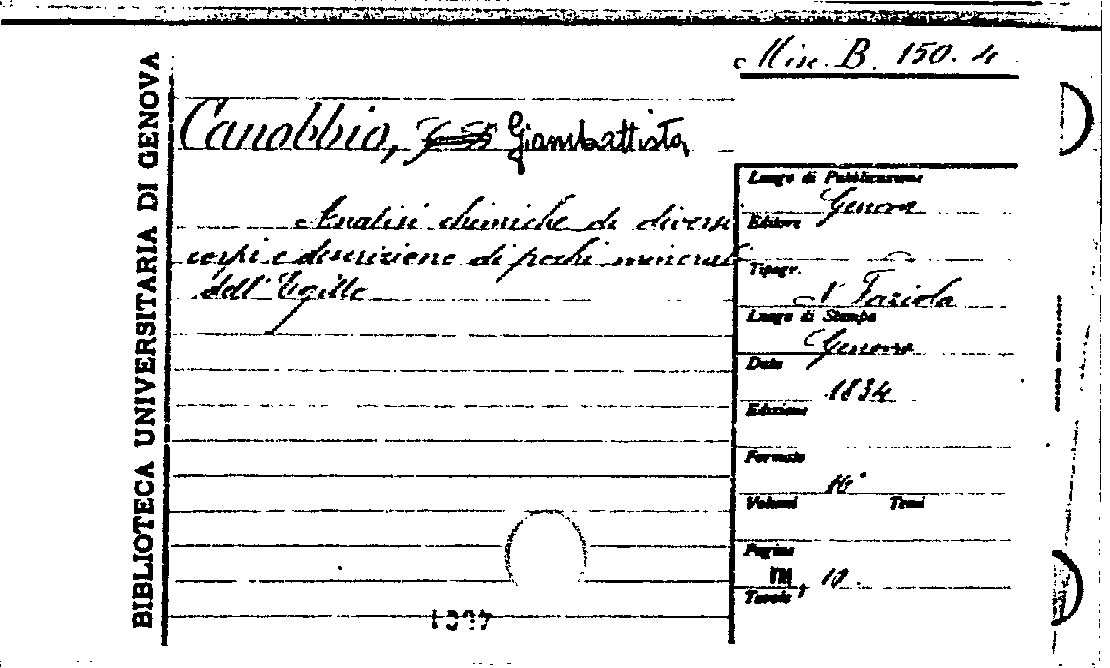 BIBLIOTECA UNIVERSITARIA DI GENOVA
Misc. B. 150. 4
Canobbio, Giambattista
Analisi chimiche di diversi
corpi e descrizione di pochi minerali
dell'
Luogo di Pubblicazione
Genova
Editore
Tipogr.
N Faziola
Luogo di Stampa
Genova
Data
1834
Edizione
Formato
16°
Volumi Tomi
Pagine
10.
Tavole